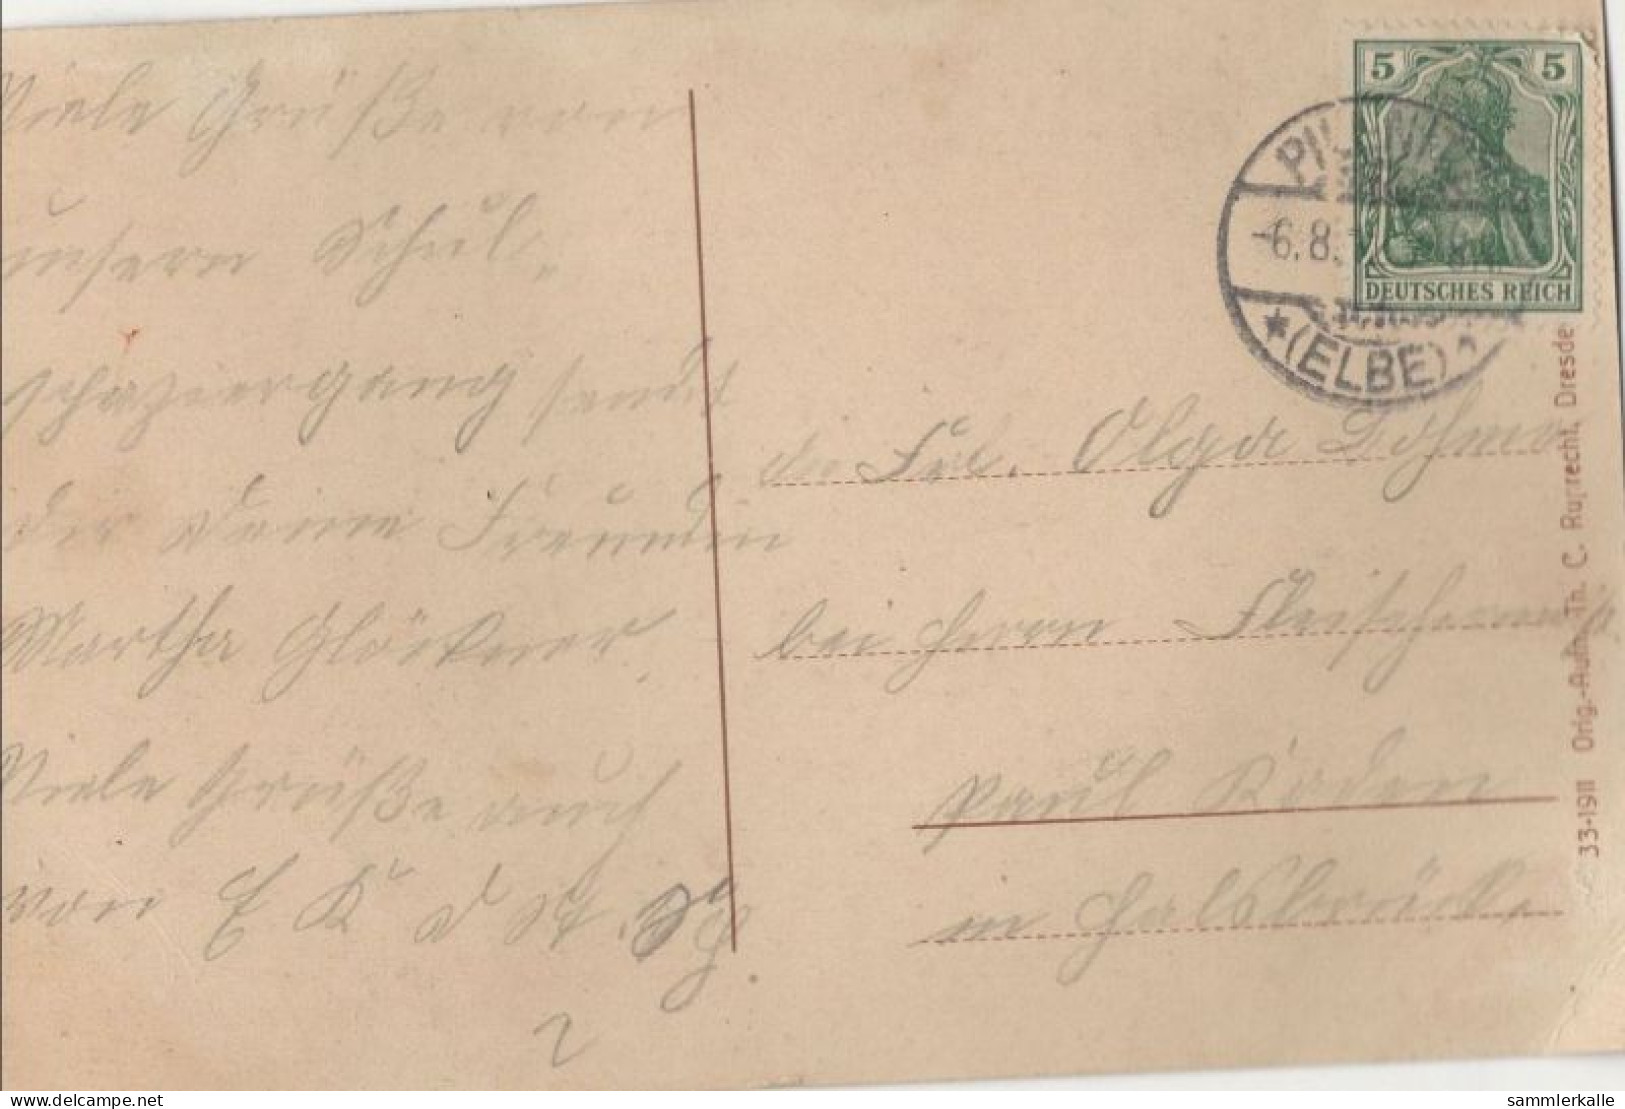 Viele Grüße von
unsern Schul-
spaziergang sendet
dir deine Freundin
Martha Glöckner.
Viele Grüße auch
von E K d
5 5
DEUTSCHES REICH
6.8.
(ELBE)
Frl. Olga
bei Herrn Fleischerms
Paul
in Halsbrücke
33-1911 Orig.-Aufn. Th. C. Ruprecht, Dresde
delcampe.net
sammlerkalle